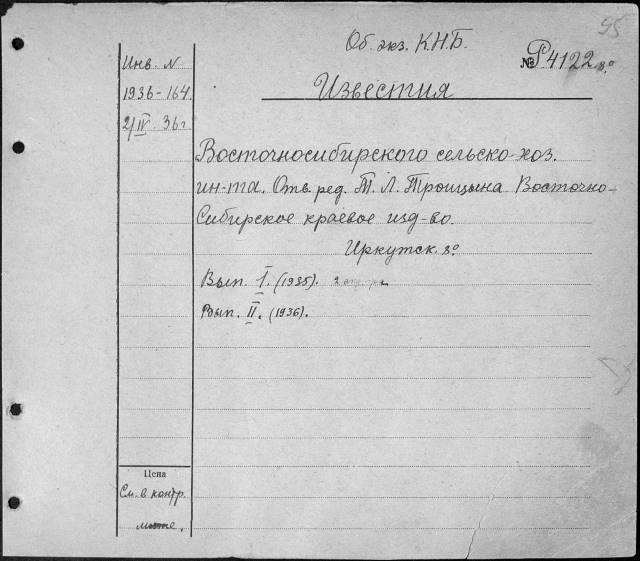 95
Об. экз. К.Н.Б.
№ Р 4122 8°
Инв. N
1936-164.
2/IV. 36 г.
Известия
Восточносибирского сельско-хоз.
ин-та. Отв. ред. Т. Л. Троицына. Восточно-
Сибирское краевое изд-во.
Иркутск. 8°
Вып. I. (1935).
Вып. II. (1936).
Цена
См. в контр.
листе.